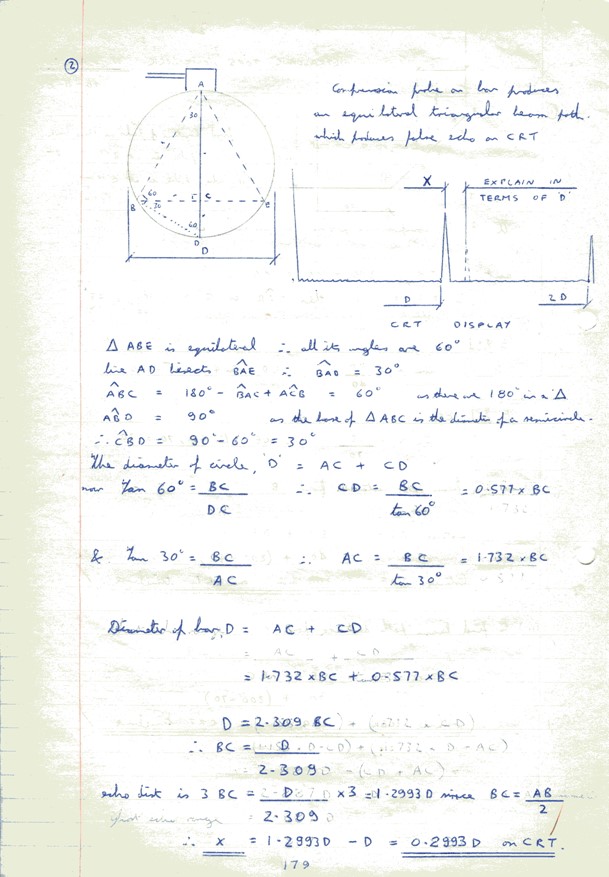 2
A
30
60
30
C
B
E
60
D
D
Compression probe on bar produces
an equilateral triangular beam path.
which produces false echo on CRT
X
EXPLAIN IN
TERMS OF 'D'
D
2D
CRT DISPLAY
Δ ABE is equilateral ∴ all its angles are 60°
line AD bisects BÂE ∴ BÂD = 30°
AB̂C = 180° - BÂC + AĈB = 60° as there are 180° in a Δ
AB̂D = 90° as the base of Δ ABC is the diameter of a semicircle.
∴ CB̂D = 90° - 60° = 30°
The diameter of circle, 'D' = AC + CD
now Tan 60° = BC / DC ∴ CD = BC / tan 60° = 0.577 x BC
& Tan 30° = BC / AC ∴ AC = BC / tan 30° = 1.732 x BC
Diameter of bar, D = AC + CD
= 1.732 x BC + 0.577 x BC
D = 2.309 BC
∴ BC = D / 2.309
echo dist is 3 BC = D / 2.309 x 3 = 1.2993D since BC = AB / 2
∴ x = 1.2993D - D = 0.2993D on CRT.
179